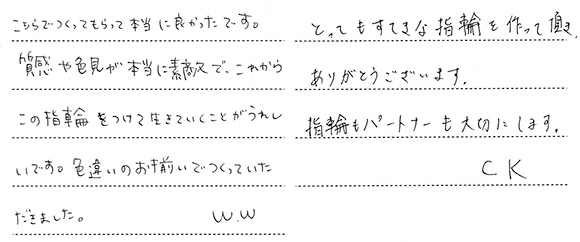 こちらでつくってもらって本当に良かったです。
質感や色見が本当に素敵で、これから
この指輪をつけて生きていくことがうれし
いです。色違いのお揃いでつくっていた
だきました。 W.W
とってもすてきな指輪を作って頂き、
ありがとうございます。
指輪もパートナーも大切にします。
CK